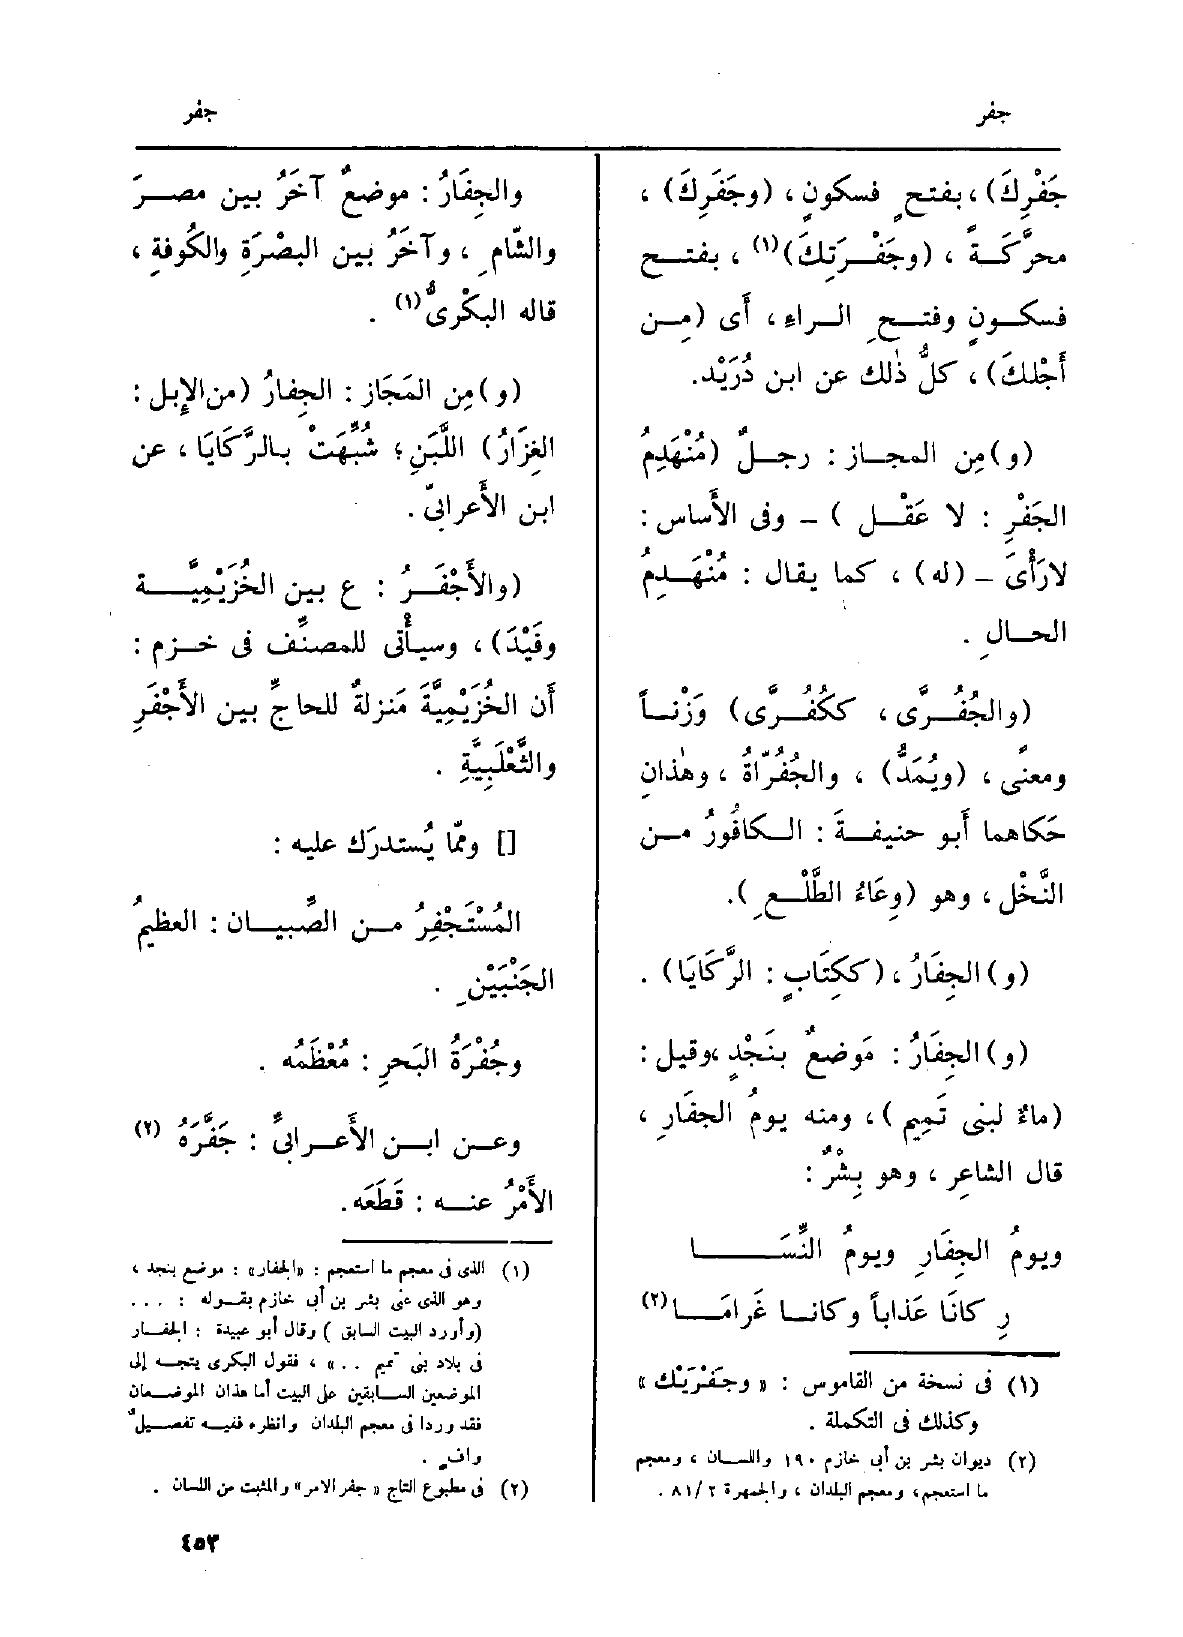 جفر
جفر
جَفْرِكَ)، بفتحٍ فسكونٍ، (وجَفَرِكَ)،
محرَّكَــةً، (وجَفْــرَتِكَ)(١)، بفتــح
فسكــونٍ وفتــحِ الــراءِ، أَى (مِــن
أَجْلِكَ)، كلُّ ذٰلك عن ابن دُرَيْد.
(و) مِن المجــاز: رجــلٌ (مُنْهَدِمُ
الجَفْرِ: لا عَقْــل) ـ وفى الأَساس:
لا رَأْىَ ـ (له)، كما يقال: مُنْهَــدِمُ
الحــالِ.
(والجُفُــرَّى، ككُفُــرَّى) وَزْنــاً
ومعنًى، (ويُمَدُّ)، والجُفُرّاةُ، وهٰذانِ
حَكاهما أَبو حنيفــةَ: الــكافُورُ مــن
النَّخْل، وهو (وِعَاءُ الطَّلْــعِ).
(و) الجِفَارُ، (ككِتَابٍ: الرَّكَايَا).
(و) الجِفَارُ: مَوضعٌ بنَجْدٍ، وقيل:
(ماءٌ لبنى تَمِيم)، ومنه يومُ الجِفَارِ،
قال الشاعِر، وهو بِشْرٌ:
ويومُ الجِفَارِ ويومُ النِّسَــــا
رِ كانَا عَذاباً وكانــا غَرامَــا(٢)
(١) فى نسخة من القاموس: «وجَفْرَيْك»
وكذلك فى التكملة.
(٢) ديوان بشر بن أبى خازم ١٩٠ واللسان، ومعجم
ما استعجم، ومعجم البلدان، والجمهرة ٢/ ٨١.
والجِفَارُ: موضعٌ آخَرُ بين مصــرَ
والشّامِ، وآخَرُ بين البصْرَةِ والكُوفةِ،
قاله البَكْرىُّ(١).
(و) مِن المَجَاز: الجِفارُ (من الإِبل:
الغِزَارُ) اللَّبَنِ؛ شُبِّهَتْ بالرَّكايَا، عن
ابن الأَعرابىّ.
(والأَجْفَــرُ: ع بين الخُزَيْمِيَّــــة
وفَيْدَ)، وسيأْتى للمصنِّف فى خــزم:
أَن الخُزَيْمِيَّةَ مَنزلةٌ للحاجِّ بين الأَجْفَرِ
والثَّعْلَبِيَّةِ.
[] وممّا يُستدرَك عليه:
المُسْتَجْفِرُ مــن الصِّبيــان: العظيمُ
الجَنْبَيْنِ.
وجُفْرَةُ البَحرِ: مُعْظَمُه.
وعــن ابــن الأَعــرابىِّ: جَفَّرَهُ (٢)
الأَمْرُ عنــه: قَطَعَه.
(١) الذى فى معجم ما استعجم: «الجفار»: موضع بنجد،
وهو الذى عنى بشر بن أبى خازم بقــوله: ...
(وأورد البيت السابق) وقال أبو عبيدة: الجفــار
فى بلاد بنى تميم ..»، فقول البكرى يتجــه إلى
الموضعين الســابقين على البيت أما هذان الموضــعان
فقد وردا فى معجم البلدان وانظره ففيــه تفصيــلٌ
وافٍ.
(٢) فى مطبوع التاج «جفر الامر» والمثبت من اللسان.
٤٥٣